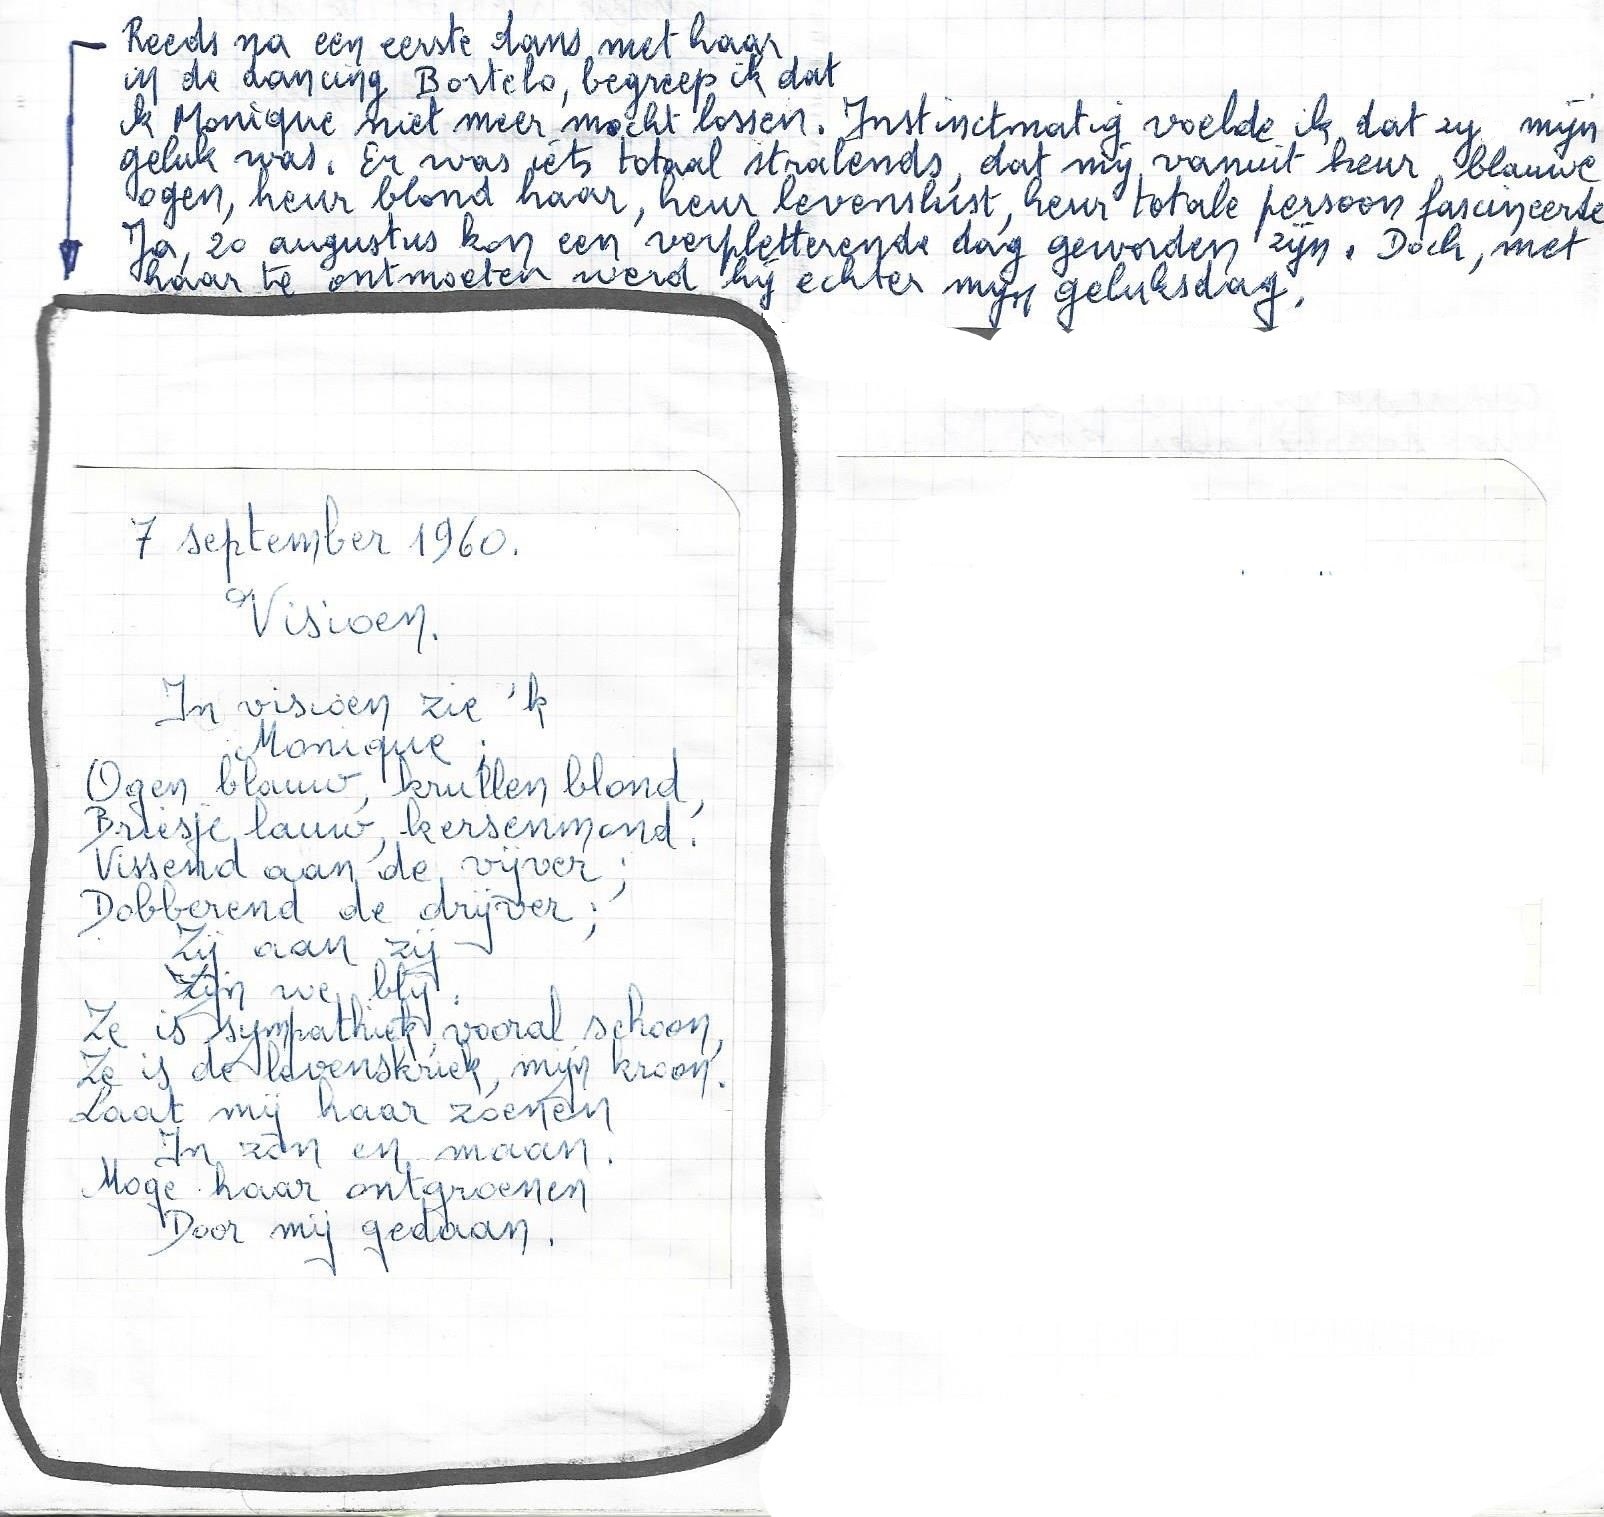 Reeds na een eerste dans met haar
in de dancing Bostelo, begreep ik dat
ik Monique niet meer mocht lossen. Instinctmatig voelde ik dat zij mijn
geluk was. Er was iets totaal stralends, dat mij vanuit heur blauwe
ogen, heur blond haar, heur levenslust, heur totale persoon fascineerde
Ja, 20 augustus kon een verpletterende dag geworden zijn. Doch, met
haar te ontmoeten werd hij echter mijn geluksdag.
7 september 1960.
Visioen.
In visioen zie 'k
Monique;
Ogen blauw, krullen blond,
Briesje lauw, kersenmond.
Vissend aan de vijver;
Dobberend de drijver;
Zij aan zij
Zijn we blij.
Ze is sympathiek, vooral schoon,
Ze is de levenskriek, mijn kroon.
Laat mij haar zoenen
In zon en maan.
Moge haar ontgroenen
Door mij gedaan.